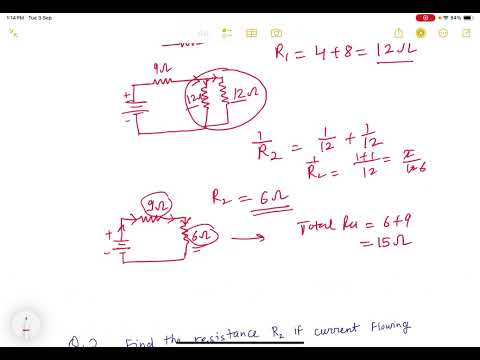 1:14 PM Tue 3 Sep
84%
R₁ = 4+8 = 12Ω
9Ω
12Ω
12Ω
1/R₂ = 1/12 + 1/12
1/R₂ = 1+1/12 = 2/12 6
R₂ = 6Ω
9Ω
6Ω
Total Res = 6+9
= 15Ω
Q.2 Find the resistance R₂ if current flowing